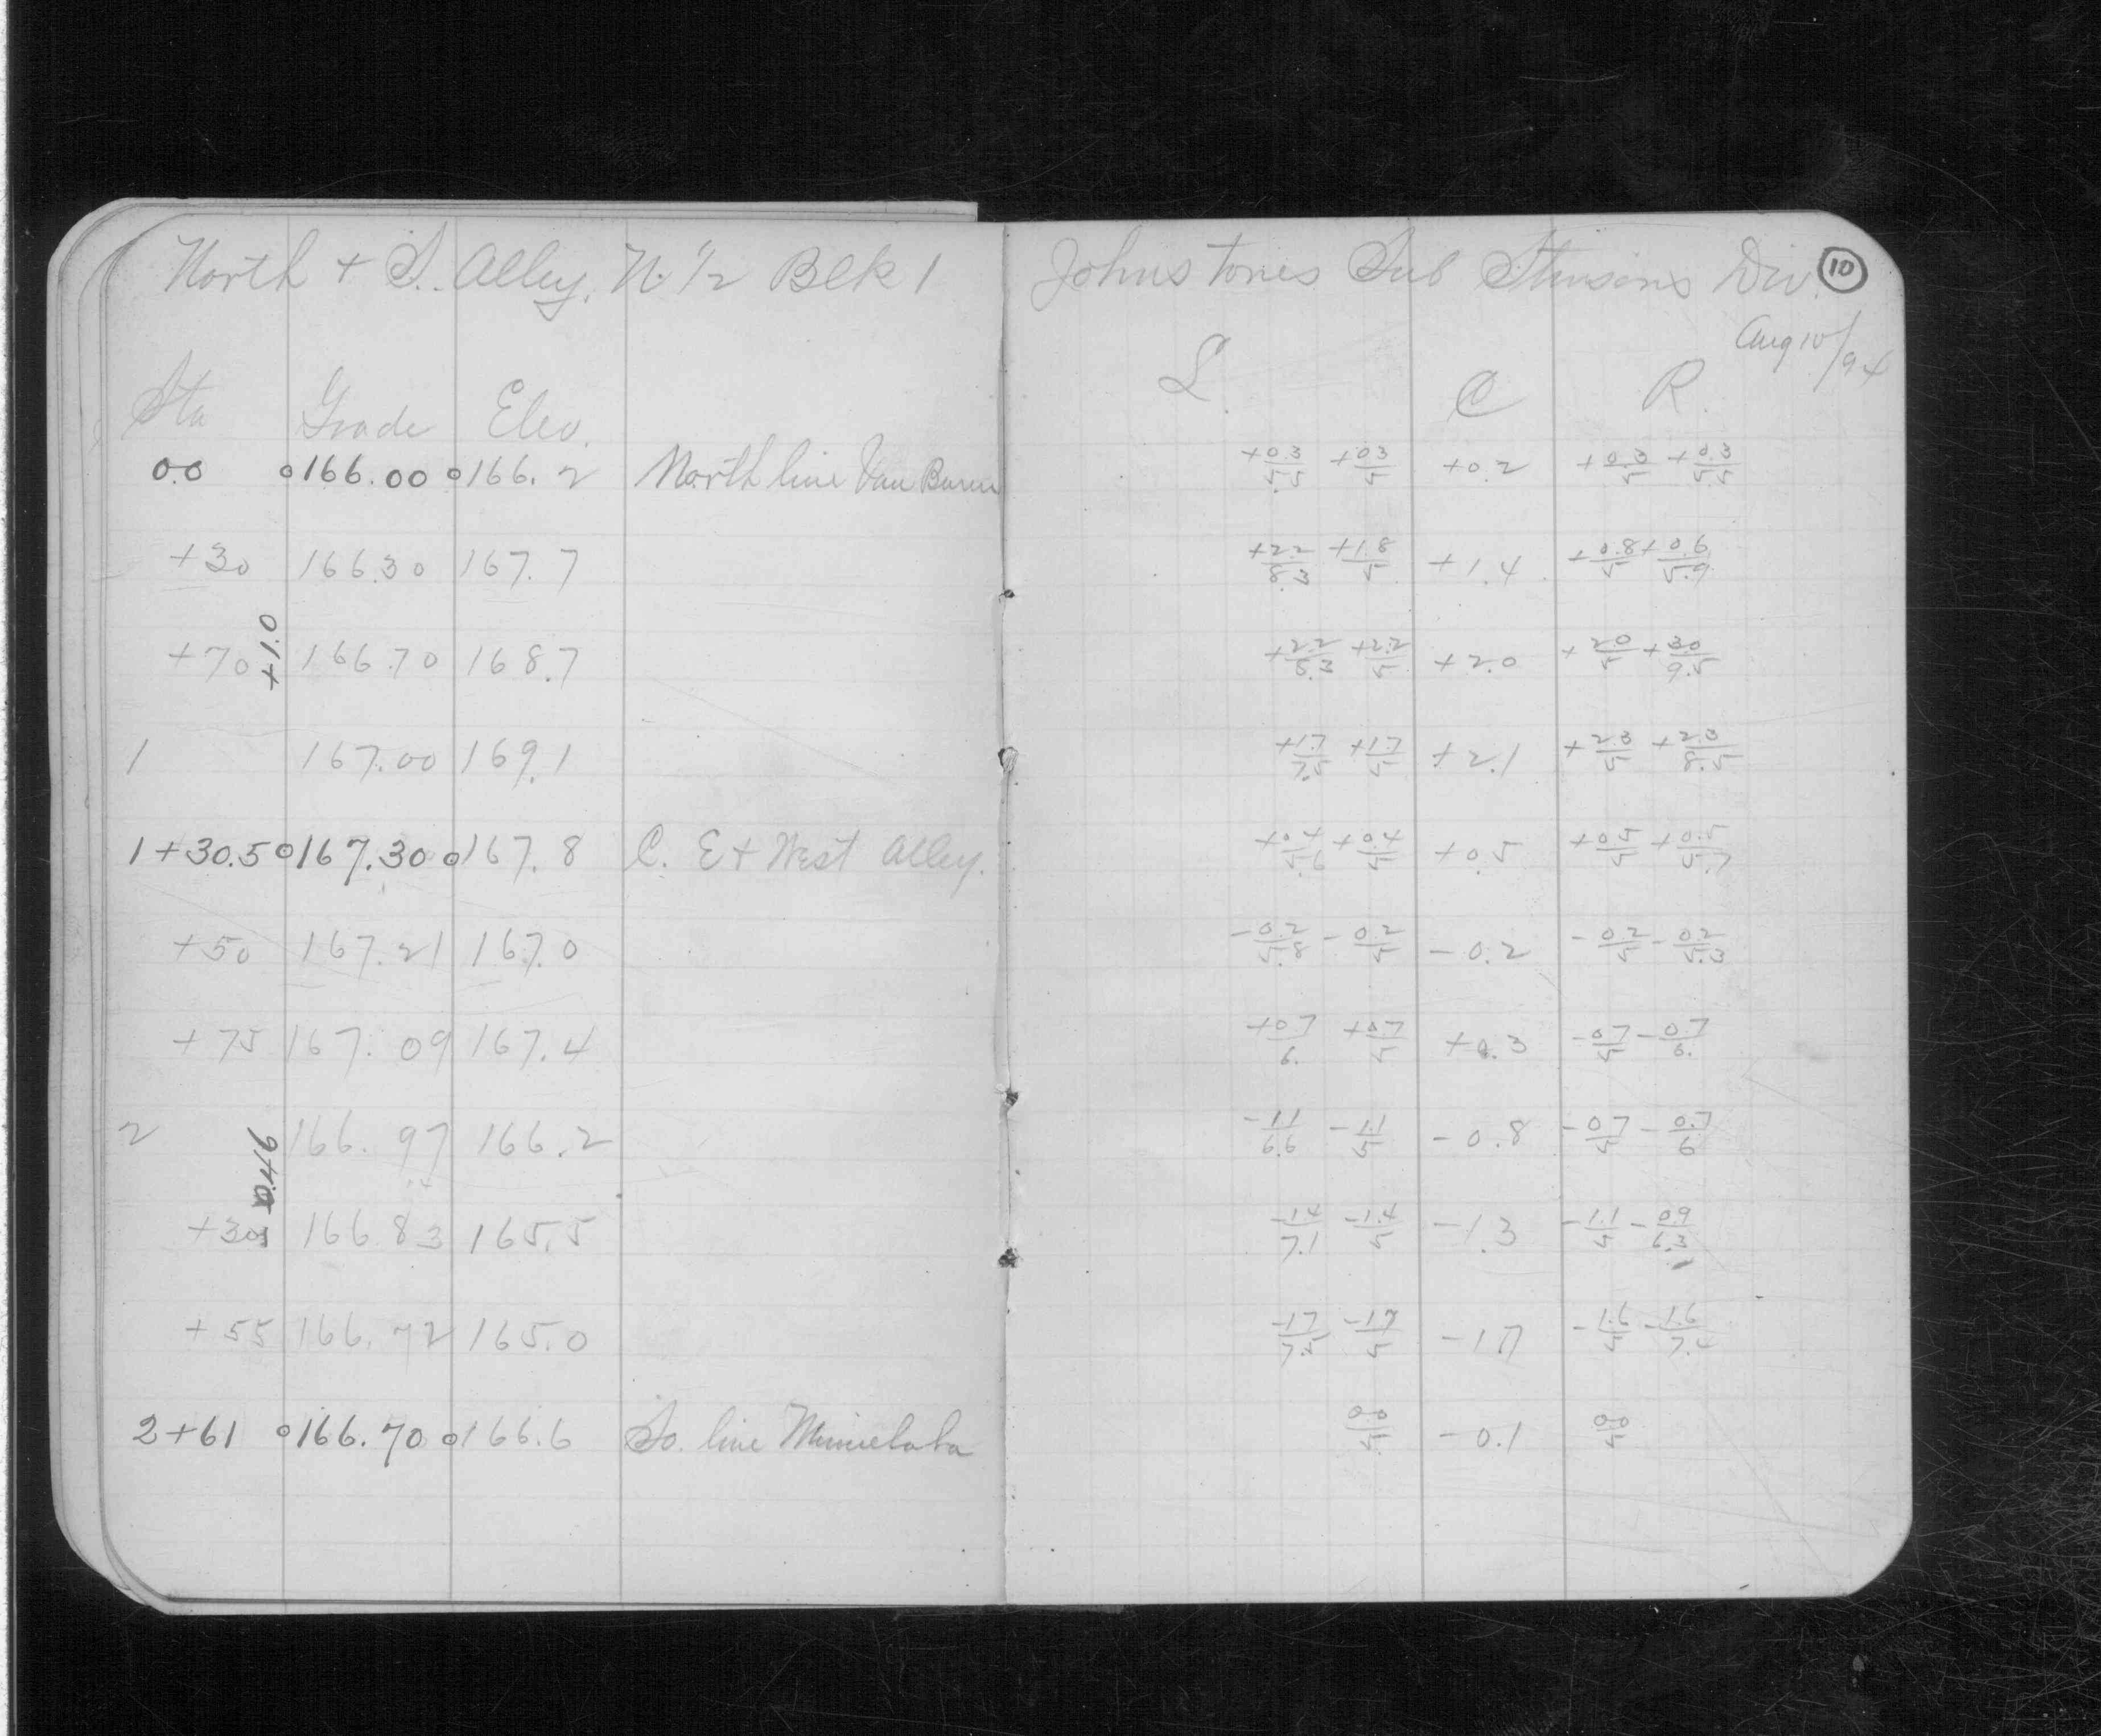 North + S. Alley, N. 1/2 Blk 1 Johnstones Sub Stinsons Div. 10
Aug 10/94
Sta Grade Elev. L. C R.
0.0 166.00 166.2 North line Van Buren +0.3/5.5 +0.3/5 +0.2 +0.3/5 +0.3/5.5
+30 166.30 167.7 +2.2/8.3 +1.8/5 +1.4 +0.8/5 +0.6/5.9
+1.0
+70 166.70 168.7 +2.2/8.3 +2.2/5 +2.0 +2.0/5 +3.0/9.5
1 167.00 169.1 +1.7/7.5 +1.7/5 +2.1 +2.3/5 +2.3/8.5
1+30.5 167.30 167.8 C. E + West Alley. +0.4/5.6 +0.4/5 +0.5 +0.5/5 +0.5/5.7
+50 167.21 167.0 -0.2/5.8 -0.2/5 -0.2 -0.2/5 -0.2/5.3
+75 167.09 167.4 +0.7/6. +0.7/5 +0.3 -0.7/5 -0.7/6.
2 166.97 166.2 -1.1/6.6 -1.1/5 -0.8 -0.7/5 -0.7/6
+30 166.83 165.5 -1.4/7.1 -1.4/5 -1.3 -1.1/5 -0.9/6.3
+55 166.72 165.0 -1.7/5 -1.7 -1.6/5 -1.6/7.4
2+61 166.70 166.6 So. line Minnehaha 0.0/5 -0.1 0.0/5